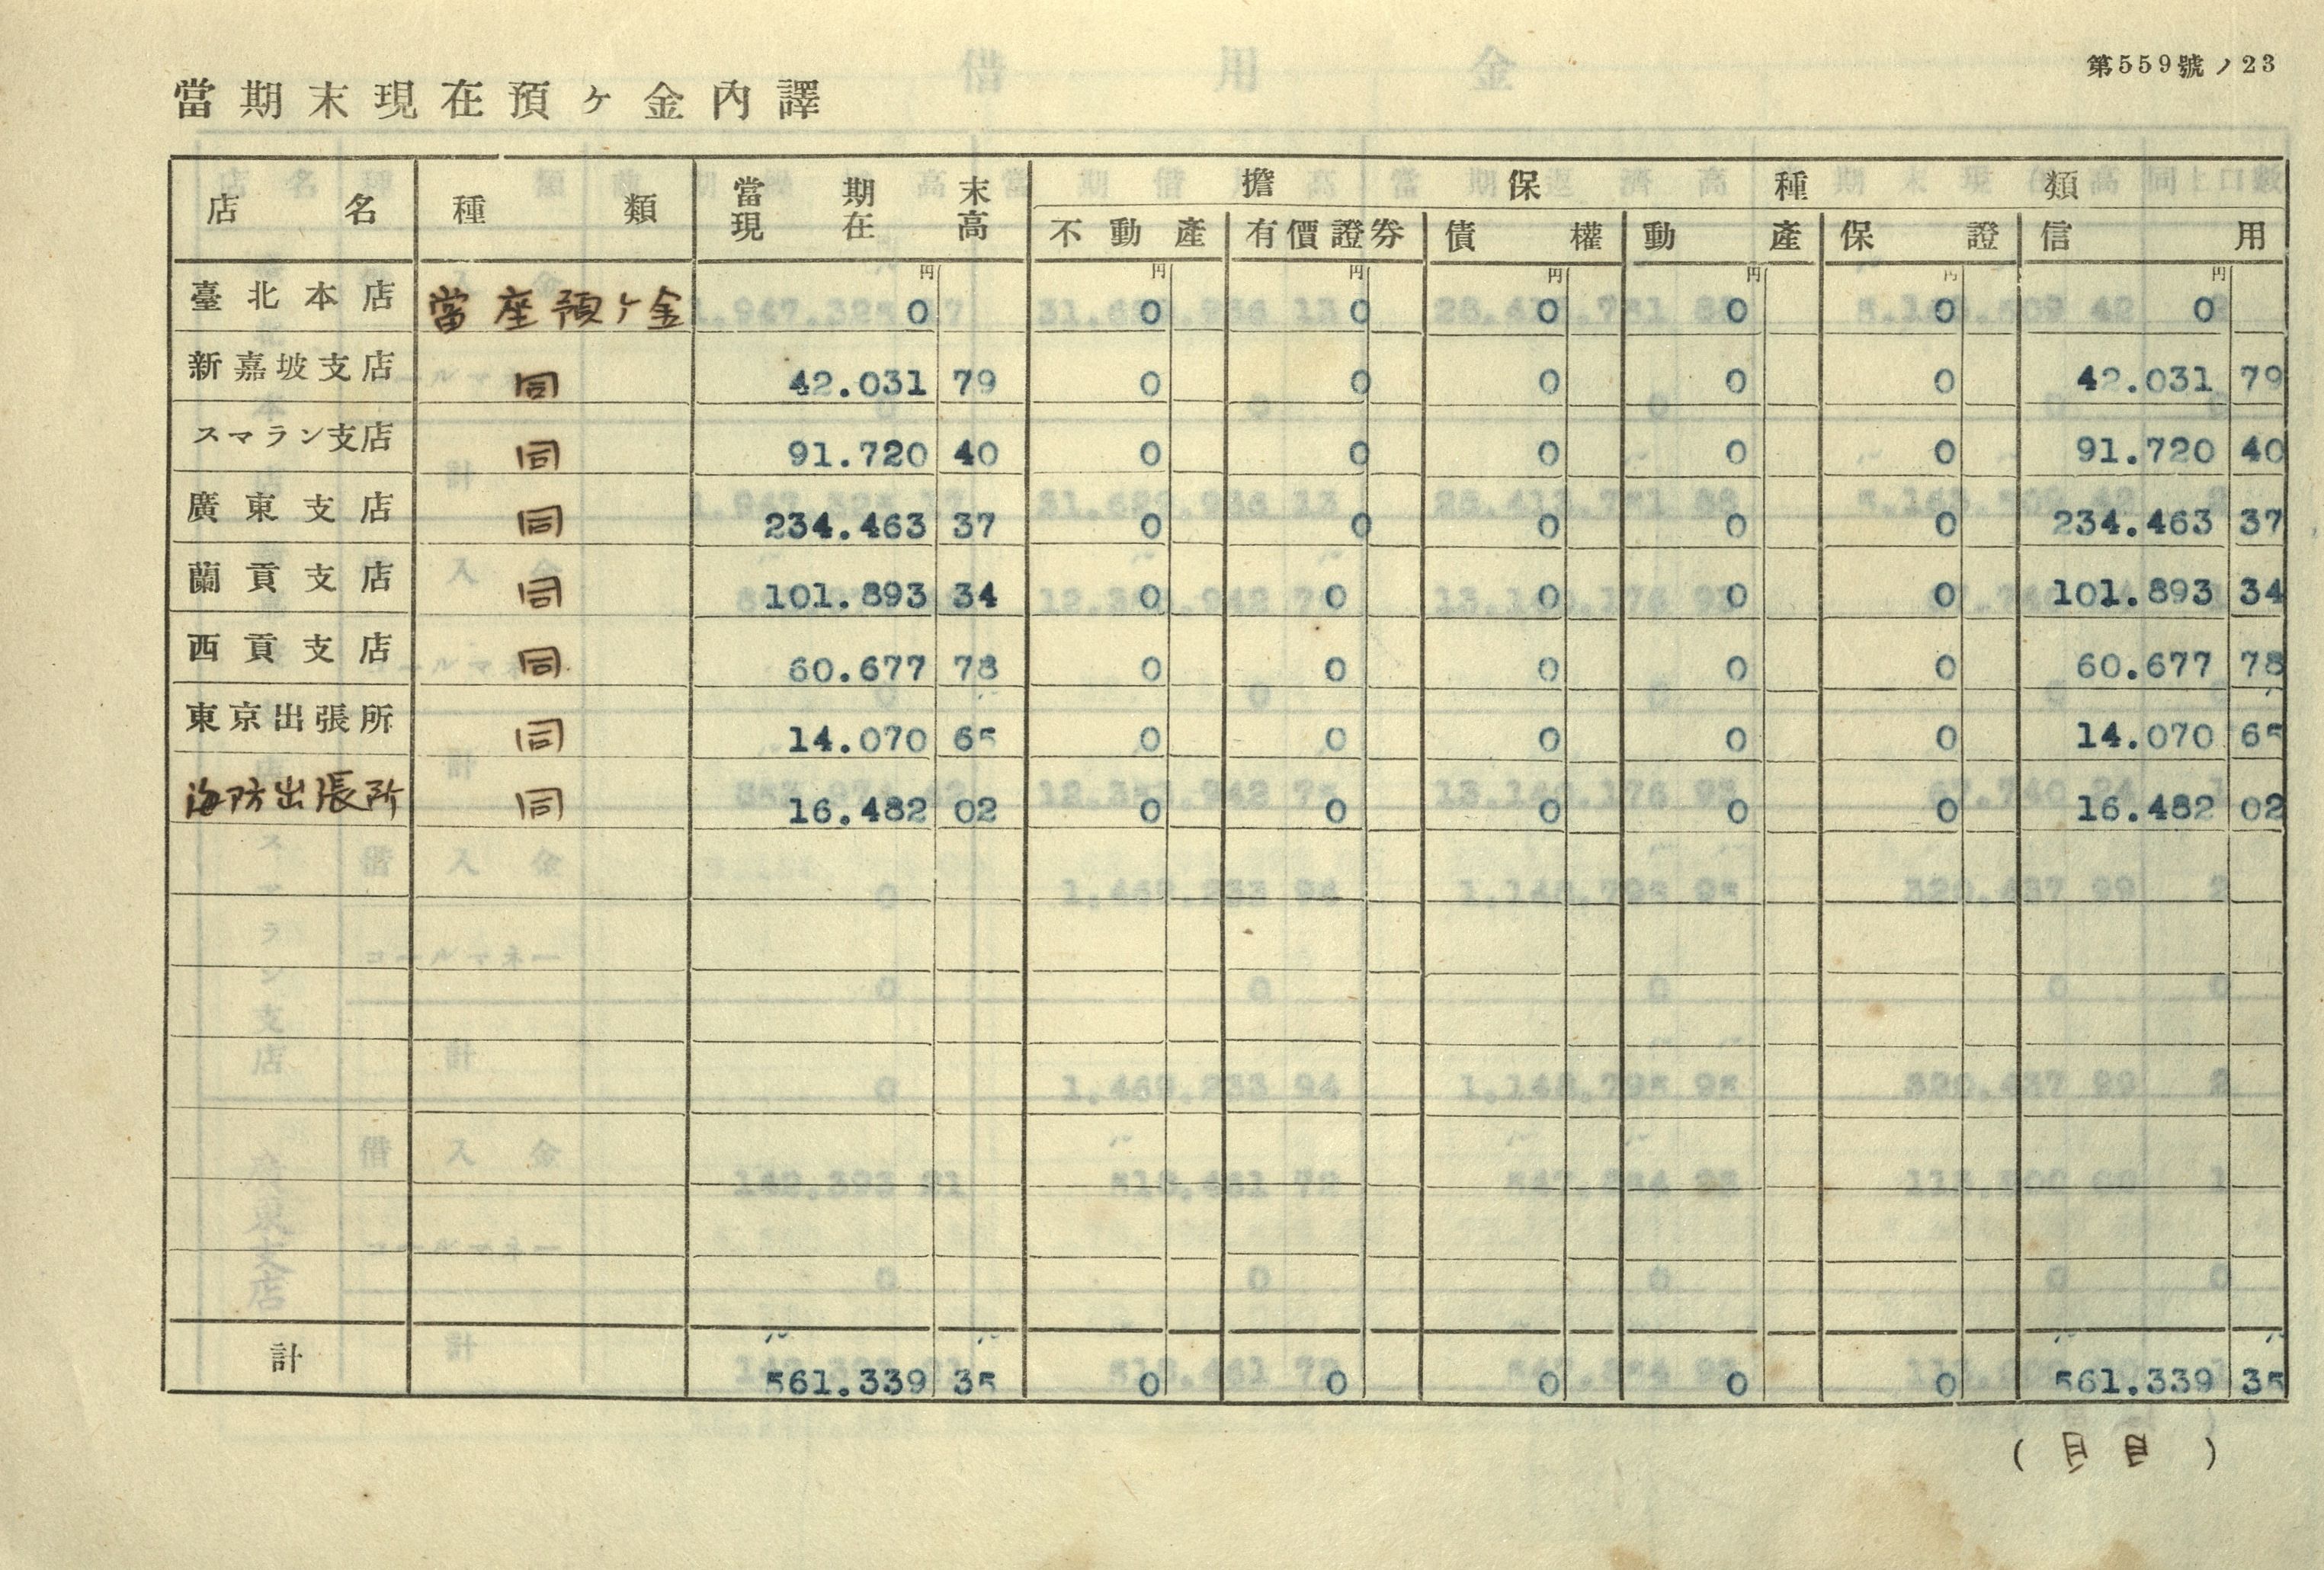 第559號ノ23
當期末現在預ヶ金內譯
店名 種類 當期末現在高 擔保種類
不動產 有價證券 債權 動產 保證 信用
円 円 円 円 円 円 円
臺北本店 當座預ヶ金 0 0 0 0 0 0 0
新嘉坡支店 同 42.031 79 0 0 0 0 0 42.031 79
スマラン支店 同 91.720 40 0 0 0 0 0 91.720 40
廣東支店 同 234.463 37 0 0 0 0 0 234.463 37
蘭貢支店 同 101.893 34 0 0 0 0 0 101.893 34
西貢支店 同 60.677 78 0 0 0 0 0 60.677 78
東京出張所 同 14.070 65 0 0 0 0 0 14.070 65
海防出張所 同 16.482 02 0 0 0 0 0 16.482 02
計 561.339 35 0 0 0 0 0 561.339 35